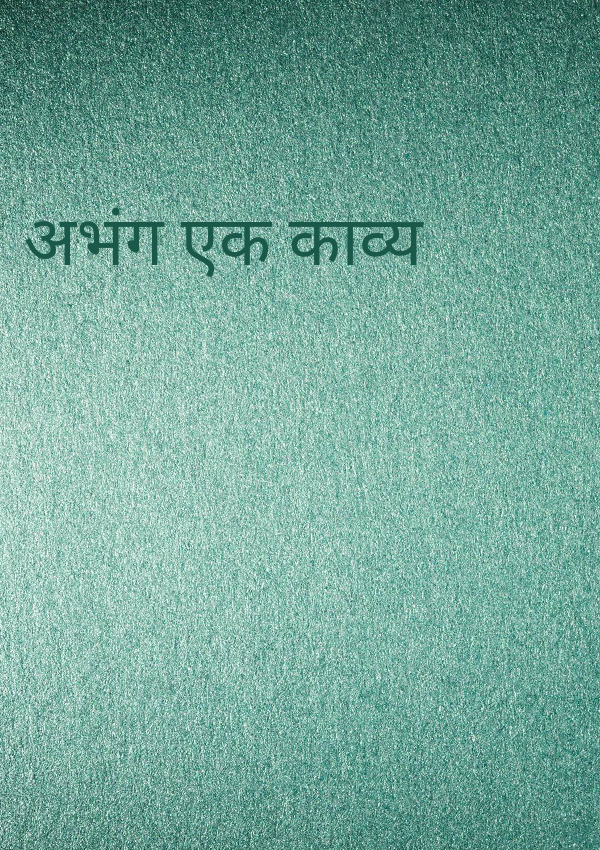 अभंग एक काव्य